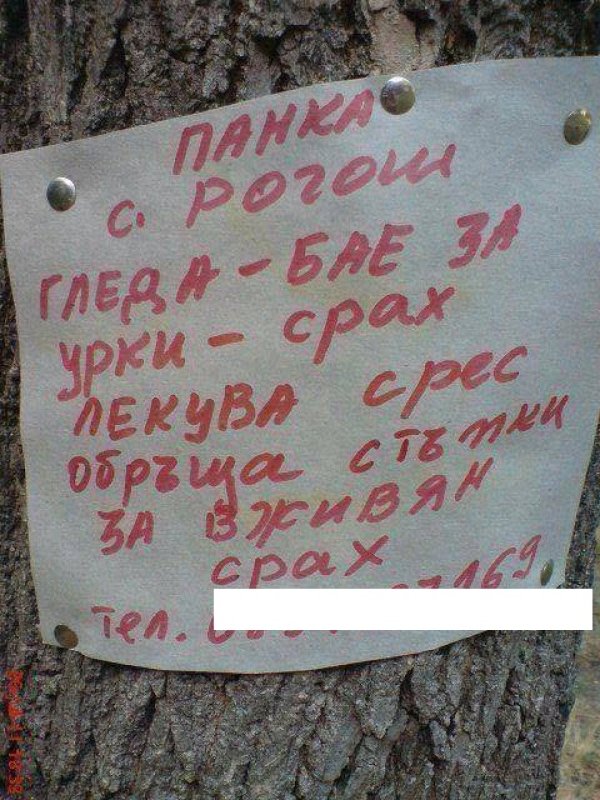 ПАНКА
с. РОГОШ
ГЛЕДА - БАЕ ЗА
УРКИ - СРАХ
ЛЕКУВА СРЕС
ОБРЪЩА СТЪПКИ
ЗА ВЖИВЯН
СРАХ
Тел.